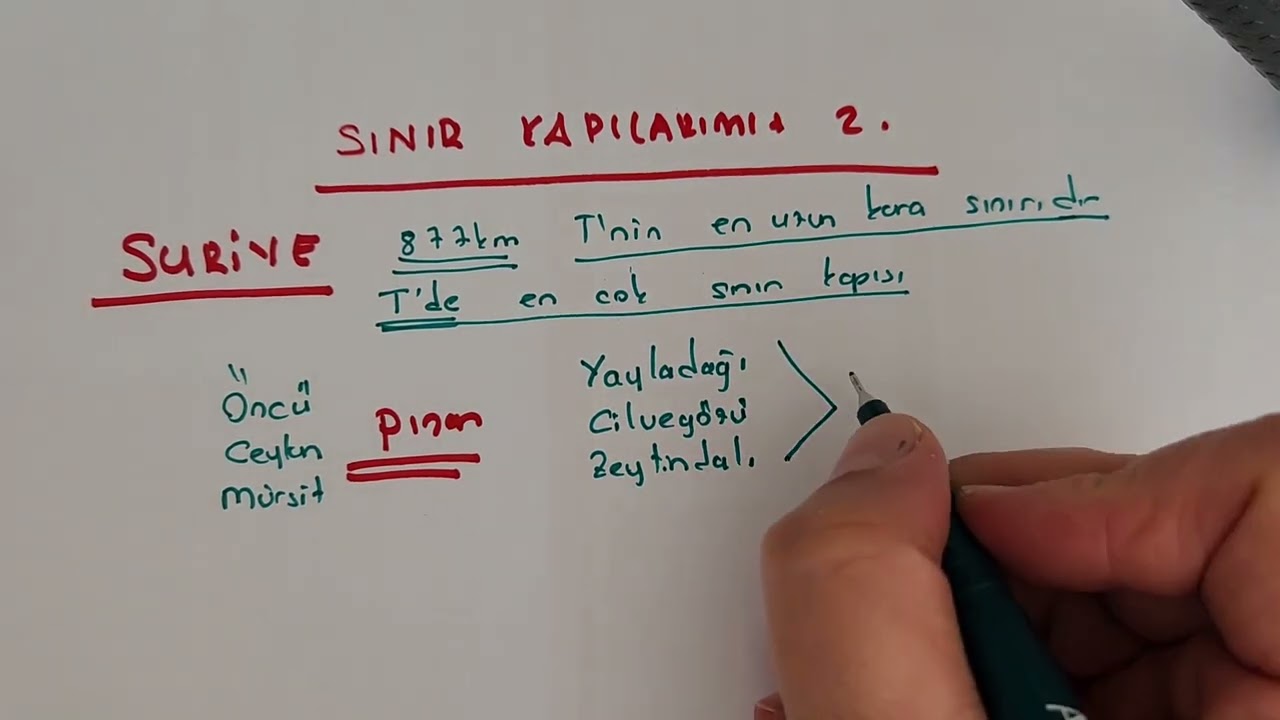 SINIR YAPILARIMIZ 2.
SURİYE 877km T'nin en uzun kara sınırıdır
T'de en cok sınır kapısı
Öncü
Ceylan
Mürsit
Pınar
Yayladağı
Cilvegözü
Zeytindalı